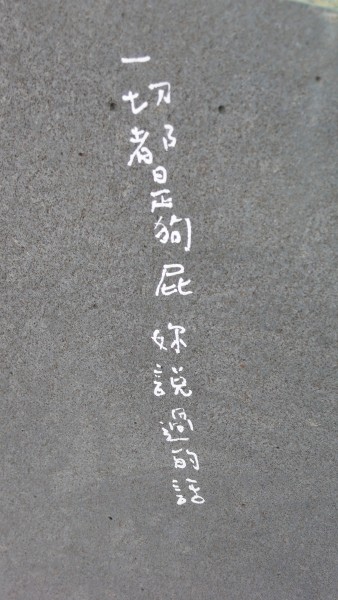 一切都是狗屁 妳說過的話